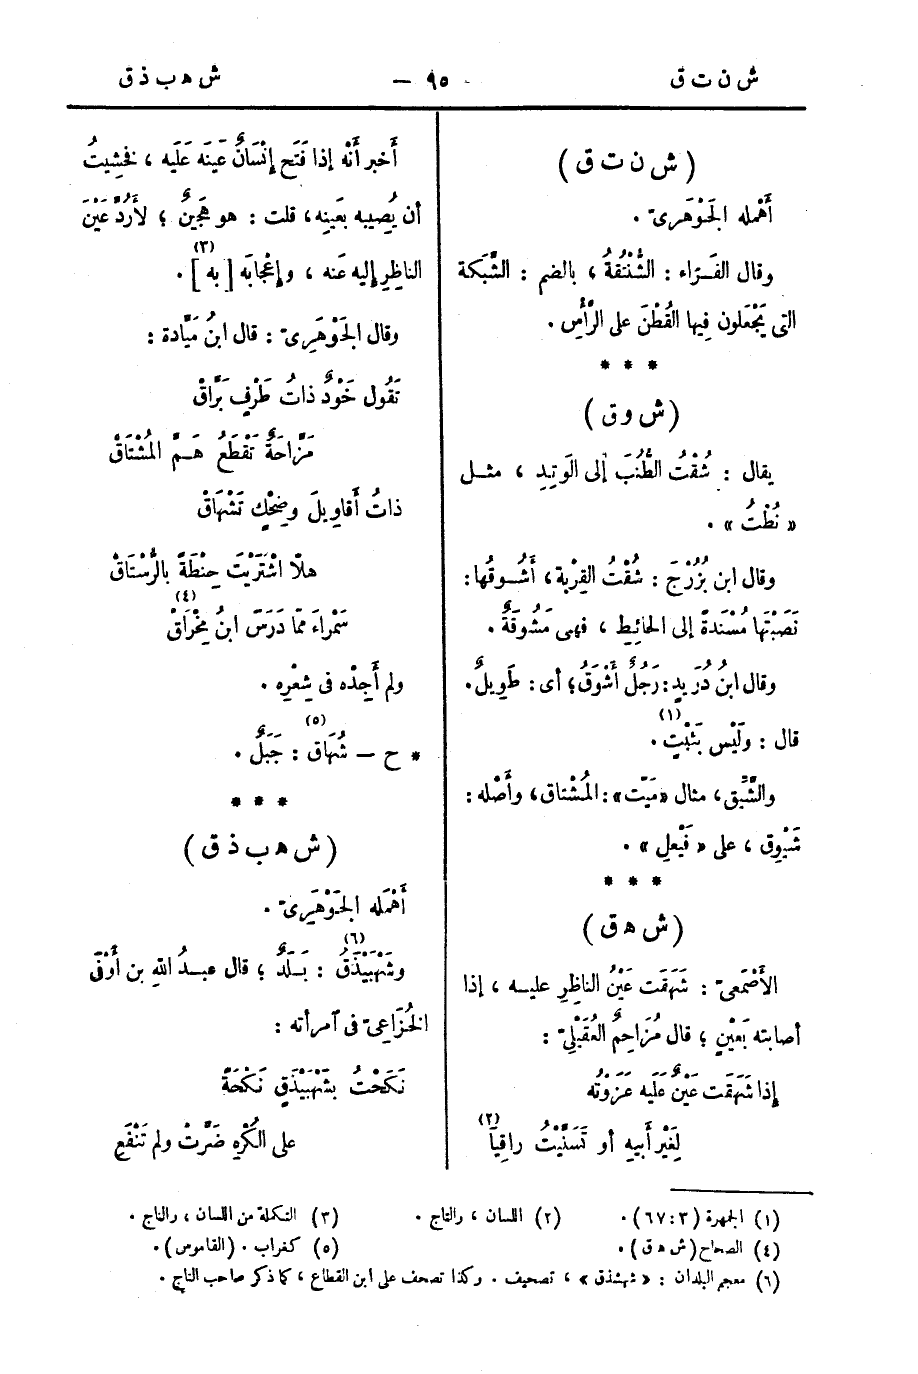 ش ن ت ق
— ٩٥ —
ش ه ب ذ ق
( ش ن ت ق )
أَهْمله الجَوْهَرِىّ .
وقال الفَرّاء : الشُّنْتُقَةُ ، بالضم : الشَّبَكة
التى يَجْعَلون فِيها القُطْنَ على الرَّأْسِ .
* * *
( ش و ق )
يقال : شُقْتُ الطُّنُبَ إلى الوَتِدِ ، مثـل
« نُطْتُ » .
وقال ابن بُزُرْجَ : شُقْتُ القِرْبة ، أَشُـوقُها :
نَصَبْتَها مُسْنَدةً إلى الحائِطِ ، فهى مَشُوقَةٌ .
وقال ابنُ دُرَيدٍ : رَجُلٌ أَشْوَقُ ؛ أى : طَوِيلٌ .
قال : ولَيْس بثَبْتٍ (١) .
والشَّيِّق ، مثال « مَيِّت » : المُشْتاق ، وأَصْله :
شَيْوِق ، على « فَيْعِل » .
* * *
( ش ه ق )
الأَصْمَعىّ : شَهَقَت عَيْنُ الناظِرِ عليـه ، إذا
أصابته بَعَيْنٍ ؛ قال مُزَاحِمٌ العُقَيْلِىّ :
إذا شَهَقَت عَيْنٌ عَلَيه عَزَوْتُه
لِغَيْر أَبيهِ أو تَسَنَّيْتُ راقِيَا (٢)
أَخبر أَنَّه إذا فَتَح إنْسَانٌ عَينَه عَلَيه ، فخَشِيتُ
أن يُصِيبه بعَينِه ، قلت : هو هَجِينٌ ؛ لأَرُدَّ عَيْنَ
الناظِرِ إليه عَنه ، وإعْجابَه [ به ] (٣) .
وقال الجَوْهَرِىّ : قال ابنُ مَيّادة :
تَقُول خَوْدٌ ذاتُ طَرْفٍ بَرَّاقْ
مَزّاحَةٌ تَقْطَعُ هَـمَّ المُشْتَاقْ
ذاتُ أَقاوِيلَ وضِحْكٍ تَشْهَاقْ
هلّا اشْتَرَيْتَ حِنْطَةً بالرُّسْتَاقْ
سَمْراءَ ممّا دَرَسَ ابنُ مِخْرَاقْ (٤)
ولم أَجِدْه فى شِعْرِه .
* ح — شُهَاق (٥) : جَبَلٌ .
* * *
( ش ه ب ذ ق )
أَهْمَله الجَوْهَرِىّ .
وشَهْبِيذَقُ (٦) : بَـلَدٌ ؛ قال عبـدُ اللهِ بن أَوْفَى
الخُزَاعِىّ فى آمرأته :
نَكَحْتُ بشَهْبِيذَقٍ نَكْحَةً
على الكُرْهِ ضَرَّتْ ولم تَنْفَعِ
(١) الجمهرة (٣ : ٦٧) .
(٢) اللسان ، والتاج .
(٣) التكملة من اللسان ، والتاج .
(٤) الصحاح (ش ه ق) .
(٥) كغراب . (القاموس) .
(٦) معجم البلدان : « شهشذق » ، تصحيف . وكذا تصحف على ابن القطاع ، كما ذكر صاحب التاج .